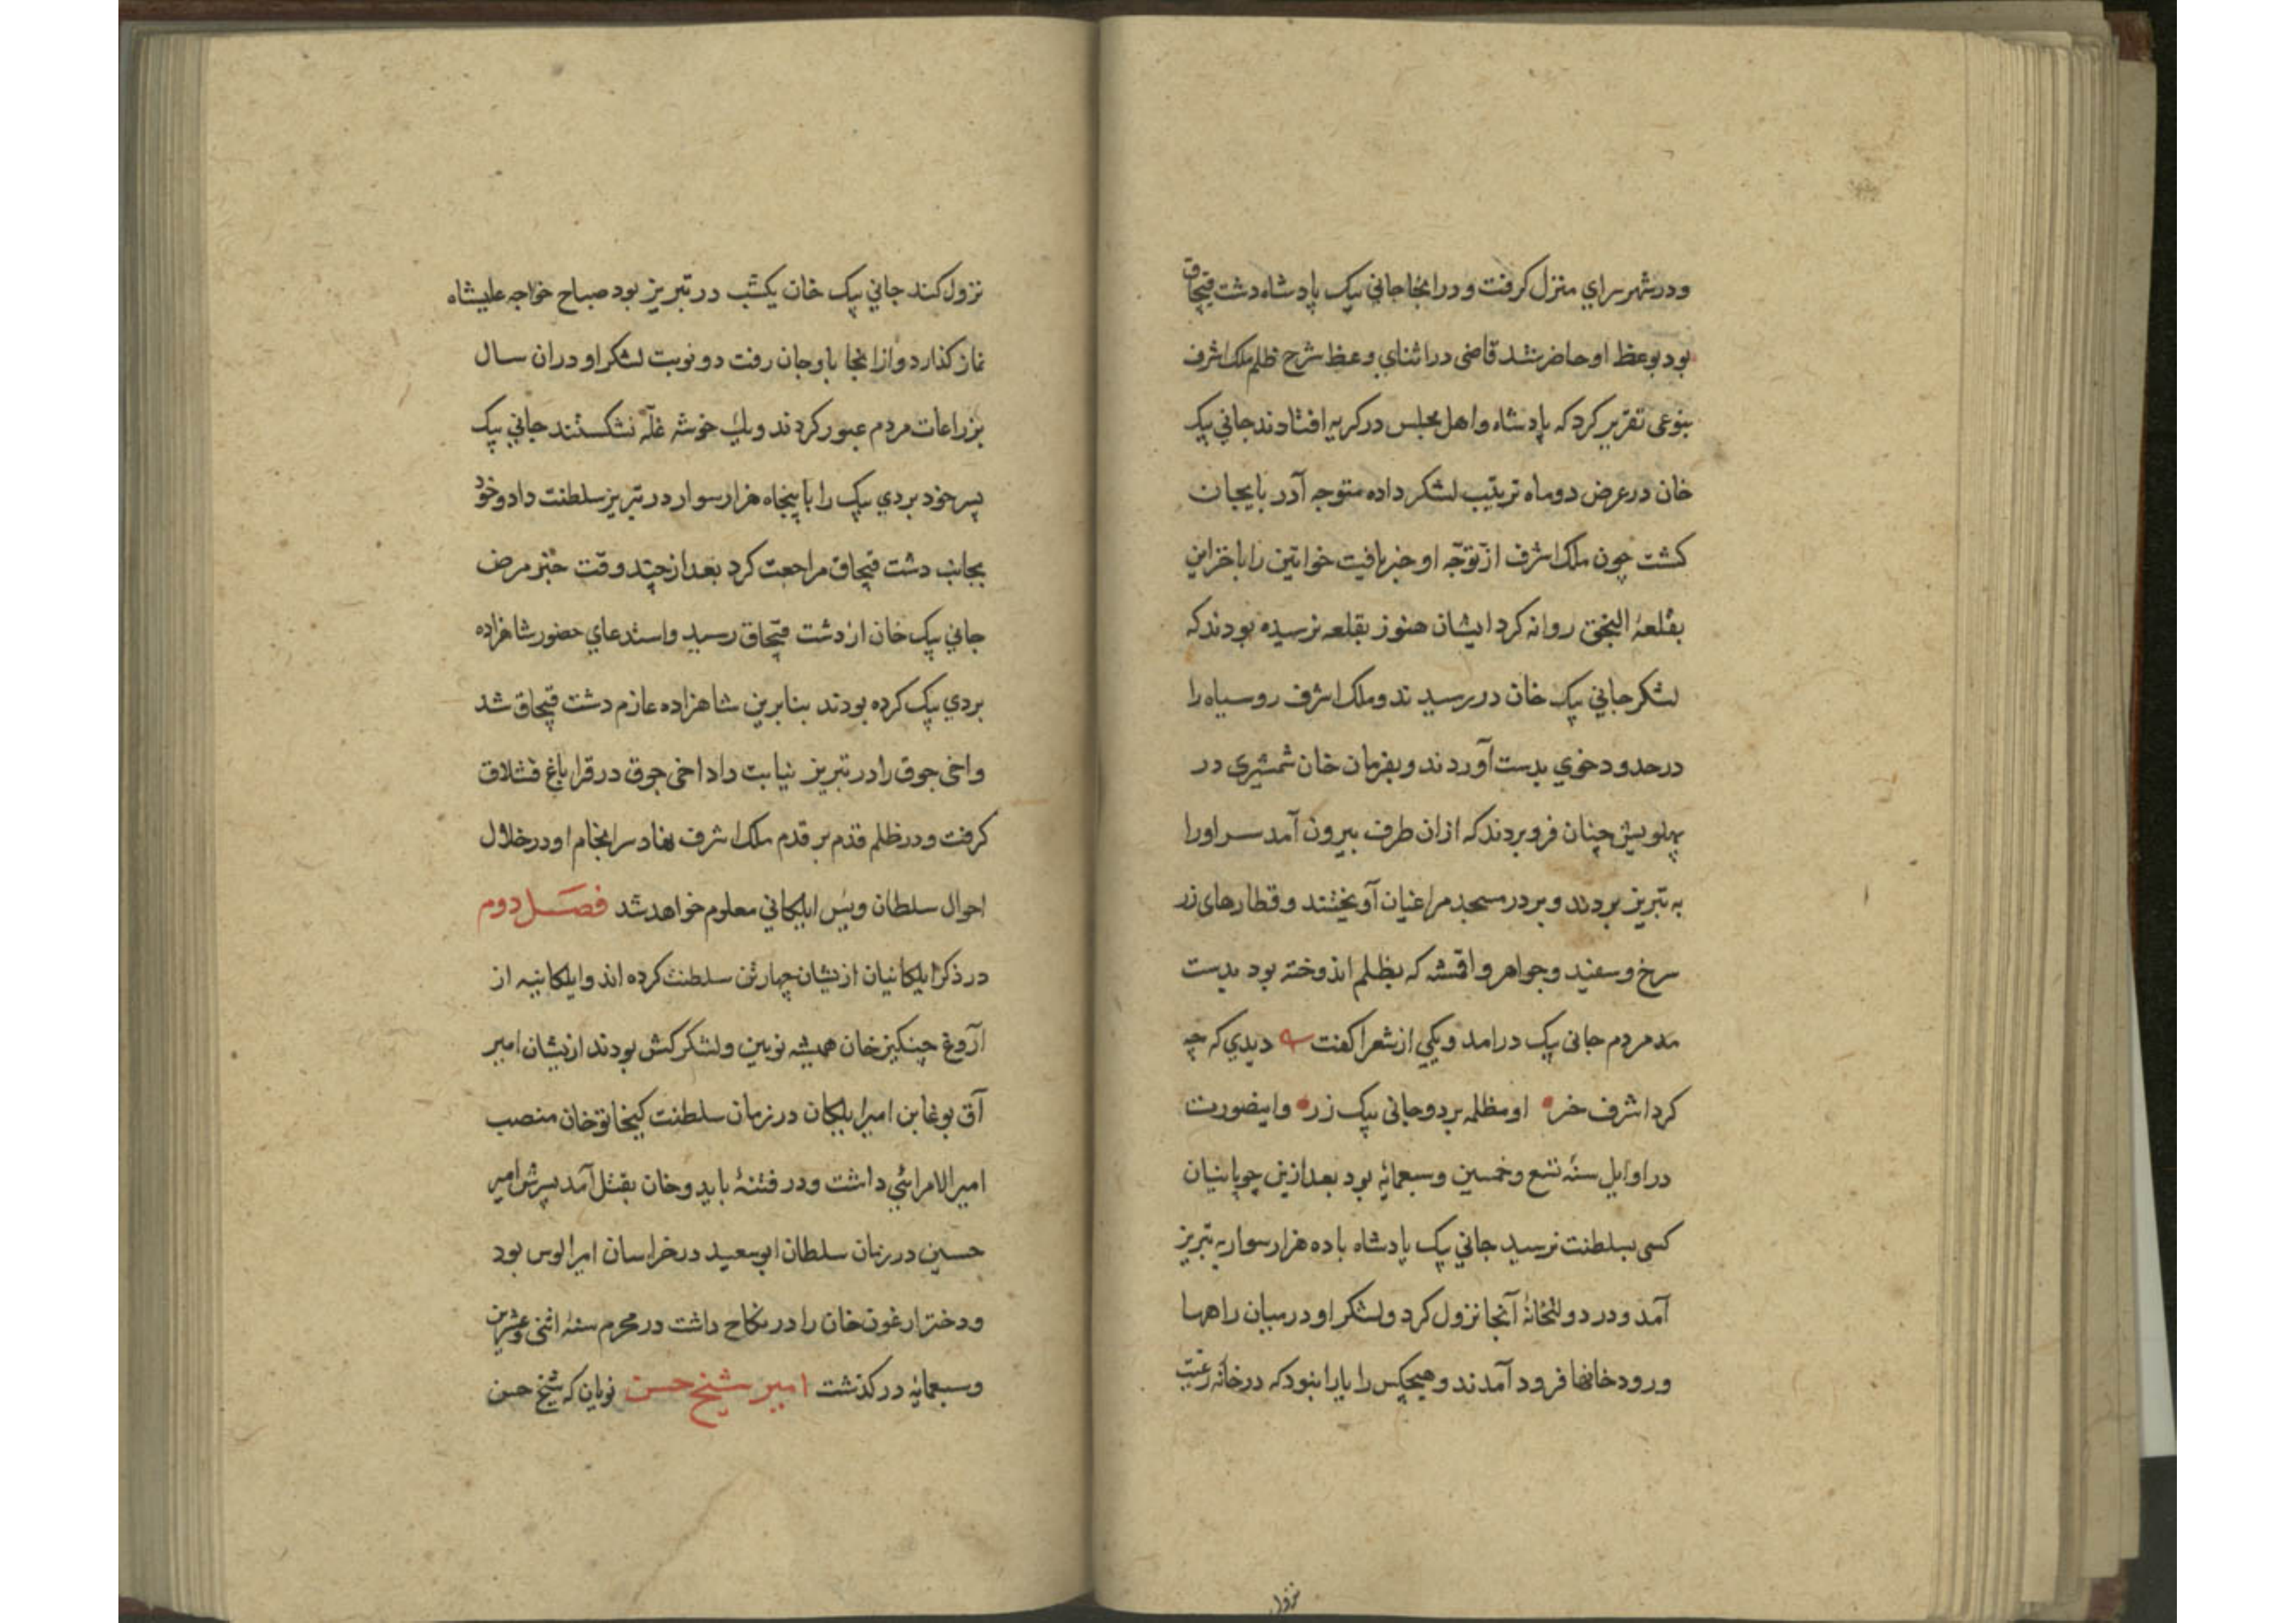 ودر شهر سراي منزل كرفت ودرانجا جاني بيك پادشاه دشت قپچاق
بود بوعظ او حاضر شد قاضى در اثناي وعظ شرح ظلم ملك اشرف
بنوعى تقرير كرد كه پادشاه واهل مجلس در كريه افتادند جاني بيك
خان در عرض دوماه ترتيب لشكر داده متوجه آذربايجان
كشت چون ملك اشرف از توجّه او خبر يافت خواتين را با خزاين
بقلعهٔ النجق روانه كرد ايشان هنوز بقلعه نرسيده بودند كه
لشكر جاني بيك خان در رسيدند وملك اشرف روسياه را
در حدود خوي بدست آوردند وبفرمان خان شمشيرى در
پهلويش چنان فرو بردند كه ازان طرف بيرون آمد سر اورا
به تبريز بردند وبر در مسجد مراغيان آويختند وقطارهاى زر
سرخ وسفيد وجواهر واقمشه كه بظلم اندوخته بود بدست
مردم جانى بيك درامد ويكي از شعرا كفت ديدي كه چه
كرد اشرف خر او مظلمه برد وجانى بيك زر واينصورت
در اوايل سنهٔ تسع وخمسين وسبعمايه بود بعد ازين چوپانيان
كسى بسلطنت نرسيد جاني بيك پادشاه با ده هزار سوار به تبريز
آمد ودر دولتخانهٔ آنجا نزول كرد ولشكر او در ميان راهها
ورودخانها فرود آمدند وهيچكس را يارا نبود كه در خانه رعيت
نزول
نزول كند جاني بيك خان يكشب در تبريز بود صباح خواجه عليشاه
نماز كذارد وازانجا باوجان رفت دو نوبت لشكر او دران سال
بزراعات مردم عبور كردند ويك خوشه غلّه نشكستند جاني بيك
پسر خود بردي بيك را با پنجاه هزار سوار در تبريز سلطنت داد وخود
بجانب دشت قپچاق مراجعت كرد بعد از چند وقت خبر مرض
جاني بيك خان از دشت قپچاق رسيد واستدعاي حضور شاهزاده
بردي بيك كرده بودند بنابرين شاهزاده عازم دشت قپچاق شد
واخى جوق را در تبريز نيابت داد اخى جوق در قراباغ قشلاق
كرفت ودر ظلم قدم بر قدم ملك اشرف نهاد سرانجام او در خلال
احوال سلطان ويس ايلكاني معلوم خواهد شد فصل دوم
در ذكر ايلكانيان ازيشان چهار تن سلطنت كرده اند وايلكانيه از
اروغ چنكيز خان هميشه نويين ولشكركش بودند ازيشان امير
آق بوغا بن امير ايلكان در زمان سلطنت كيخاتو خان منصب
امير الامرائي داشت ودر فتنهٔ بايدو خان بقتل آمد پسرش امير
حسين در زمان سلطان ابوسعيد در خراسان امير الوس بود
ودختر ارغون خان را در نكاح داشت در محرم سنه اثنى وعشرين
وسبعمايه در كذشت امير شيخ حسن نويان كه شيخ حسن